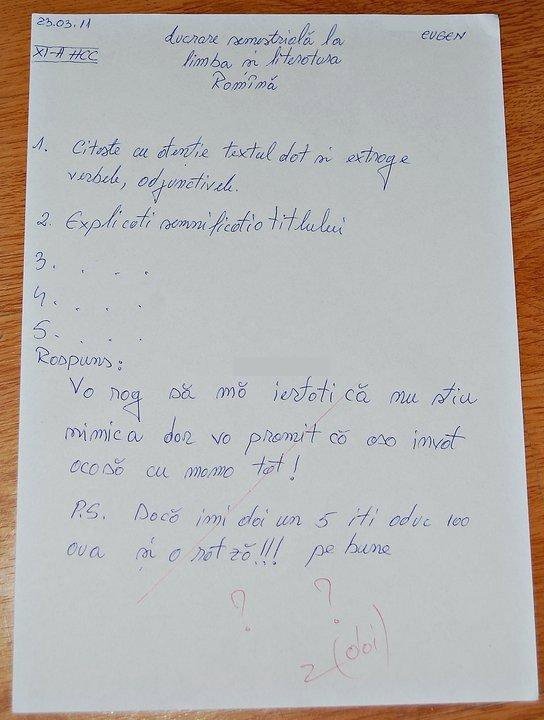 23.03.11
EUGEN
XI-A HCC
Lucrare semestrială la
limba si literatura
Romînă
1. Citeste cu atentie textul dat si extrage
verbele, adjunctivele.
2. Explicati semnificatia titlului
3. . . .
4. . . .
5. . . .
Raspuns:
Va rog să mă iertati că nu stiu
mimica dar va promit că aso invat
acasă cu mama tot!
P.S. Dacă imi dai un 5 iti aduc 100
oua și o ratză!!! pe bune
? ?
2 (doi)